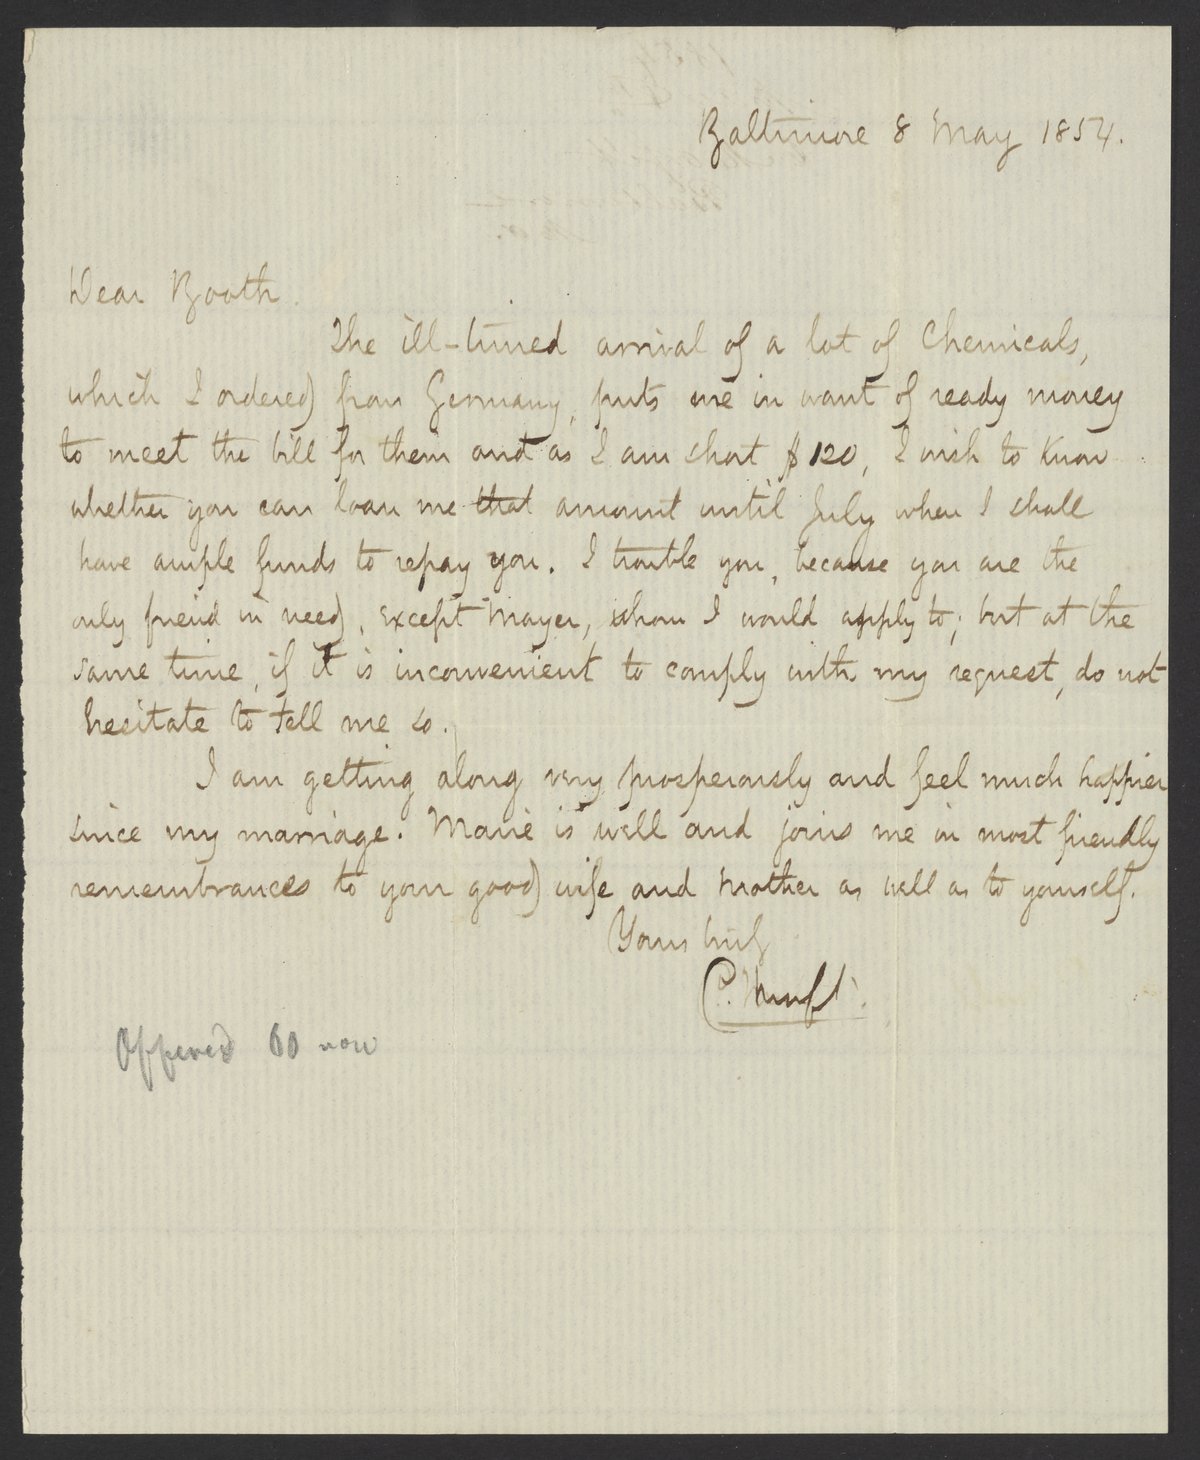 Baltimore 8 May 1854.
Dear Booth.
The ill-timed arrival of a lot of Chemicals,
which I ordered from Germany, puts me in want of ready money
to meet the bill for them and as I am short $120, I wish to know
whether you can loan me that amount until July when I shall
have ample funds to repay you. I trouble you, because you are the
only friend in need, except Mayer, whom I would apply to; but at the
same time, if it is inconvenient to comply with my request, do not
hesitate to tell me so.
I am getting along very prosperously and feel much happier
since my marriage. Marie is well and joins me in most friendly
remembrances to your good wife and mother as well as to yourself.
Yours truly
C.
Offered 60 now